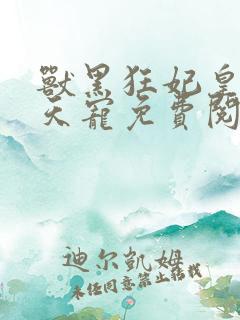 獸黑狂妃皇
天寵免費閱
迪尔凯姆
未经同意禁止转载